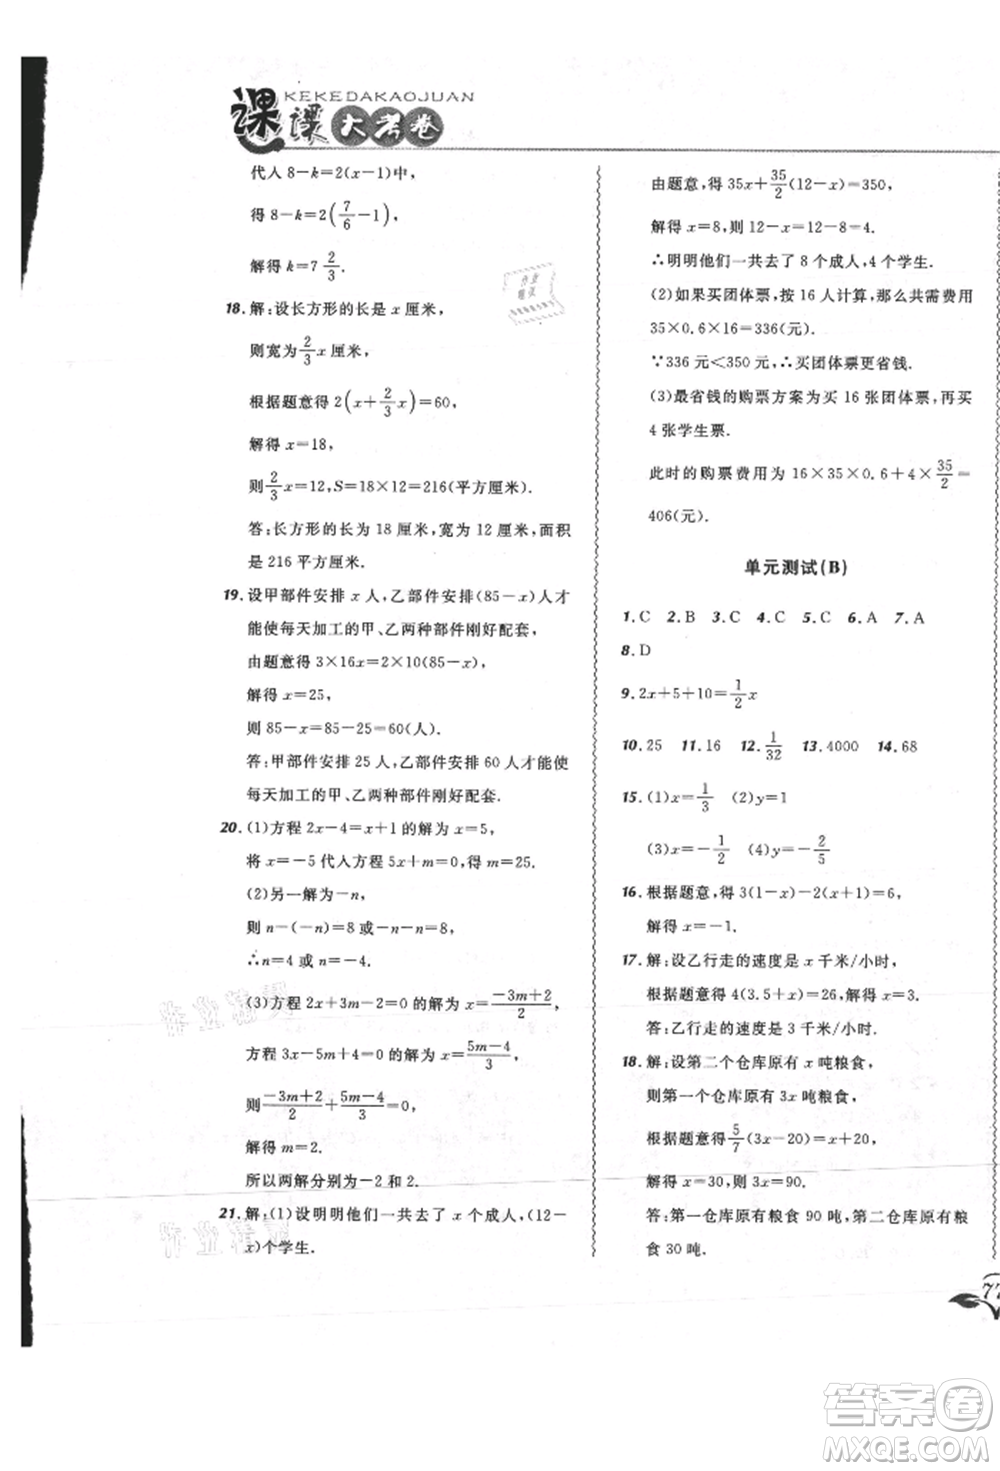 KEKEDAKAOJUAN
课课大考卷
代人 8－k=2(x－1)中，
得 8－k=2(7/6－1)，
解得 k=7 2/3.
18. 解:设长方形的长是 x 厘米，
则宽为2/3x 厘米，
根据题意得 2(x+2/3x)=60，
解得 x=18，
则2/3x=12，S=18×12=216(平方厘米).
答:长方形的长为 18 厘米，宽为 12 厘米，面积
是 216 平方厘米.
19. 设甲部件安排 x 人，乙部件安排(85－x)人才
能使每天加工的甲、乙两种部件刚好配套，
由题意得 3×16x=2×10(85－x)，
解得 x=25，
则 85－x=85－25=60(人).
答:甲部件安排 25 人，乙部件安排 60 人才能使
每天加工的甲、乙两种部件刚好配套.
20. (1)方程 2x－4=x+1 的解为 x=5，
将 x=－5 代人方程 5x+m=0，得 m=25.
(2)另一解为－n，
则 n－(－n)=8 或－n－n=8，
∴n=4 或 n=－4.
(3)方程 2x+3m－2=0 的解为 x=(－3m+2)/2，
方程 3x－5m+4=0 的解为 x=(5m－4)/3，
则(－3m+2)/2+(5m－4)/3=0，
解得 m=2.
所以两解分别为－2 和 2.
21. 解:(1)设明明他们一共去了 x 个成人，(12－
x)个学生.
由题意，得 35x+35/2(12－x)=350，
解得 x=8，则 12－x=12－8=4.
∴明明他们一共去了 8 个成人，4 个学生.
(2)如果买团体票，按 16 人计算，那么共需费用
35×0.6×16=336(元).
∵336 元＜350 元，∴买团体票更省钱.
(3)最省钱的购票方案为买 16 张团体票，再买
4 张学生票.
此时的购票费用为 16×35×0.6+4×35/2=
406(元).
单元测试(B)
1. C 2. B 3. C 4. C 5. C 6. A 7. A
8. D
9. 2x+5+10=1/2x
10. 25 11. 16 12. 1/32 13. 4000 14. 68
15. (1)x=1/3 (2)y=1
(3)x=－1/2 (4)y=－2/5
16. 根据题意，得 3(1－x)－2(x+1)=6，
解得 x=－1.
17. 解:设乙行走的速度是 x 千米/小时，
根据题意得 4(3.5+x)=26，解得 x=3.
答:乙行走的速度是 3 千米/小时.
18. 解:设第二个仓库原有 x 吨粮食，
则第一个仓库原有 3x 吨粮食，
根据题意得5/7(3x－20)=x+20，
解得 x=30，3x=90.
答:第一仓库原有粮食 90 吨，第二仓库原有粮
食 30 吨.
77
答案圈
MXQE.COM